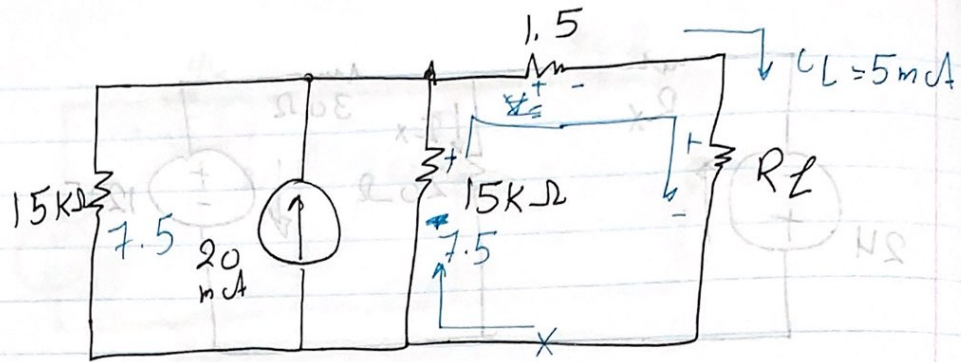 1.5
+ -
iL = 5mA
15KΩ
7.5
20
mA
+
15KΩ
7.5
+
-
RL
x
30Ω